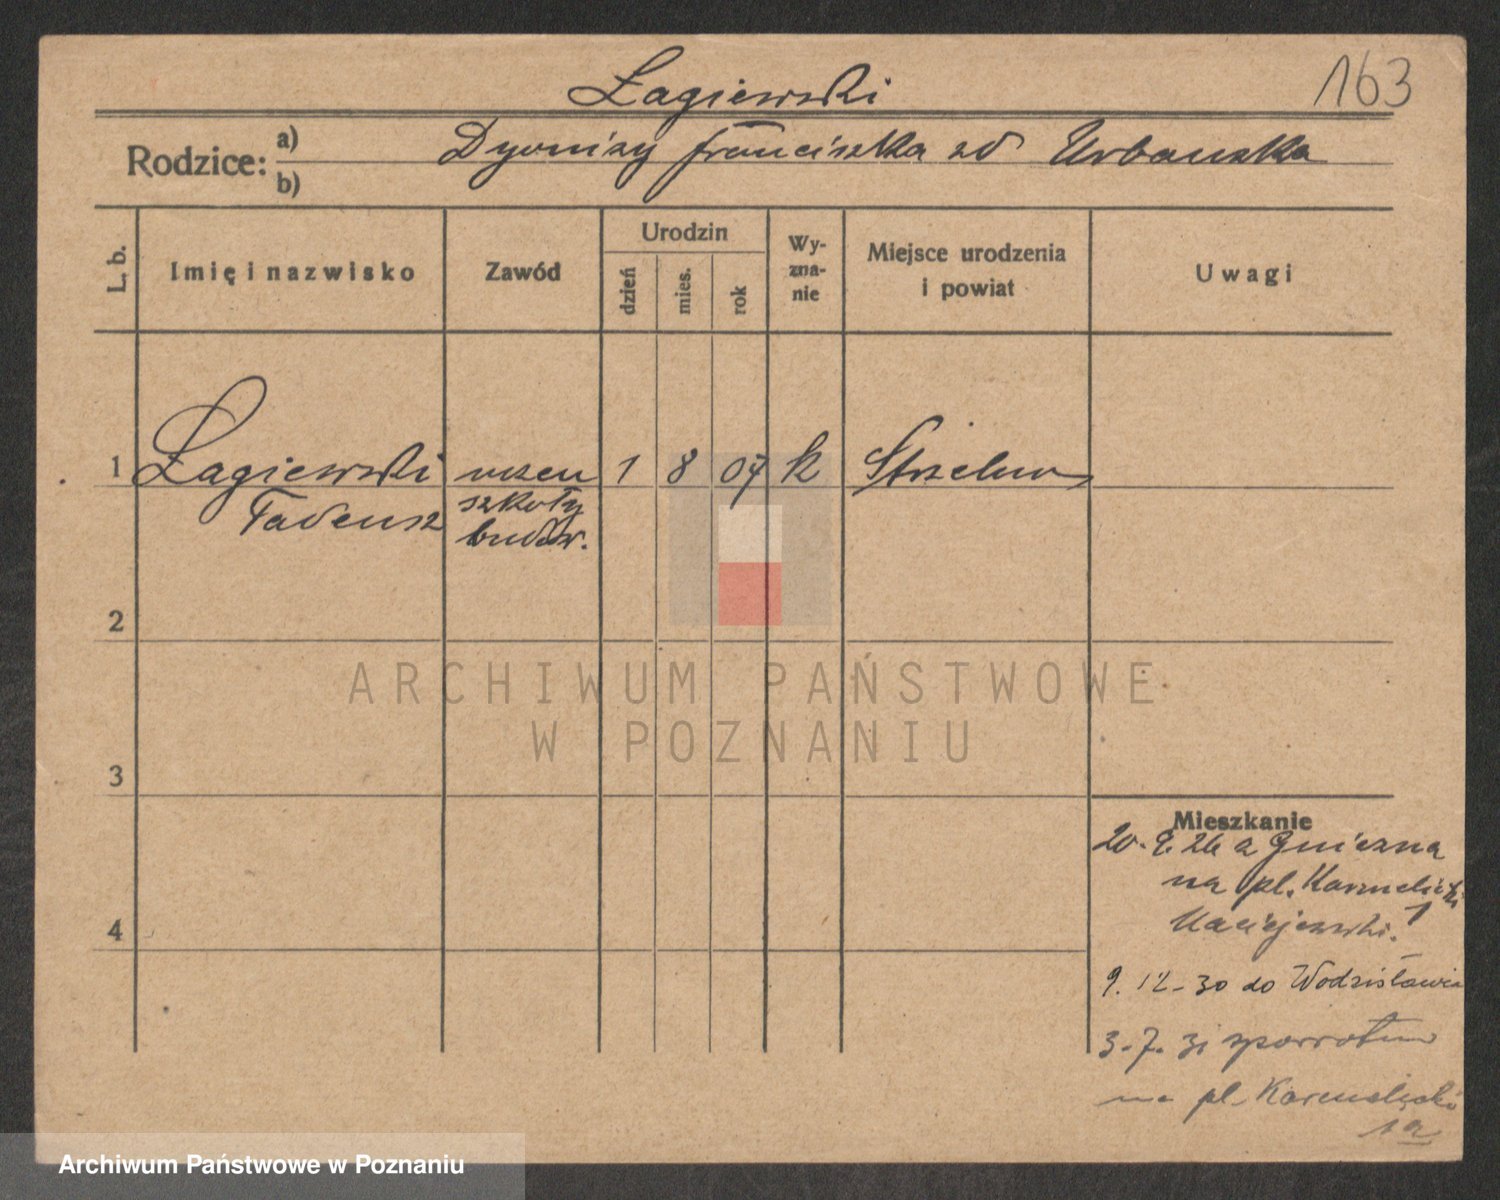 Łagiewski
163
Rodzice: a) Dyonizy Franciszka zd Urbanska
b)
L. b.
Imię i nazwisko
Zawód
Urodzin
dzień
mies.
rok
Wy-
zna-
nie
Miejsce urodzenia
i powiat
Uwagi
1 Łagiewski uczeń 1 8 07 k Strzelno
Tadeusz szkoły
budow.
2
3
4
Mieszkanie
20. 9. 26 z Gniezna
na pl. Karmelicki
Maciejewski. 1
9. 12 - 30 do Wodzisławia
3. 7. 31 zpowrotem
na pl. Karmelicki
1a
ARCHIWUM PAŃSTWOWE
W POZNANIU
Archiwum Państwowe w Poznaniu